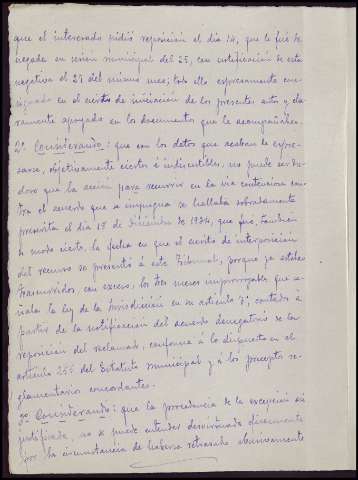 que el interesado pidió reposición el día 14, que le fué de-
negada en sesión municipal del 25, con notificación de esta
negativa el 27 del mismo mes; todo ello expresamente con-
signado en el escrito de iniciación de los presentes autos y cla-
ramente apoyado en los documentos que le acompañaban.
2º Considerando: que con los datos que acaban de expre-
sarse, objetivamente ciertos é indiscutibles, no puede ser du-
doso que la acción para recurrir en la vía contenciosa con-
tra el acuerdo que se impugna se hallaba sobradamente
prescrita el día 19 de Diciembre de 1924, que fué, también
de modo cierto, la fecha en que el escrito de interposición
del recurso se presentó á este Tribunal, porque ya estaban
transcurridos, con exceso, los tres meses improrrogables que se-
ñala la ley de la Jurisdicción en su artículo 7; contados á
partir de la notificación del acuerdo denegatorio de la
reposición del reclamado, conforme á lo dispuesto en el
artículo 255 del Estatuto municipal y á los preceptos re-
glamentarios concordantes.
3º Considerando: que la procedencia de la excepción así
justificada, no se puede entender desvirtuada ciertamente
por la circunstancia de haberse retrasado